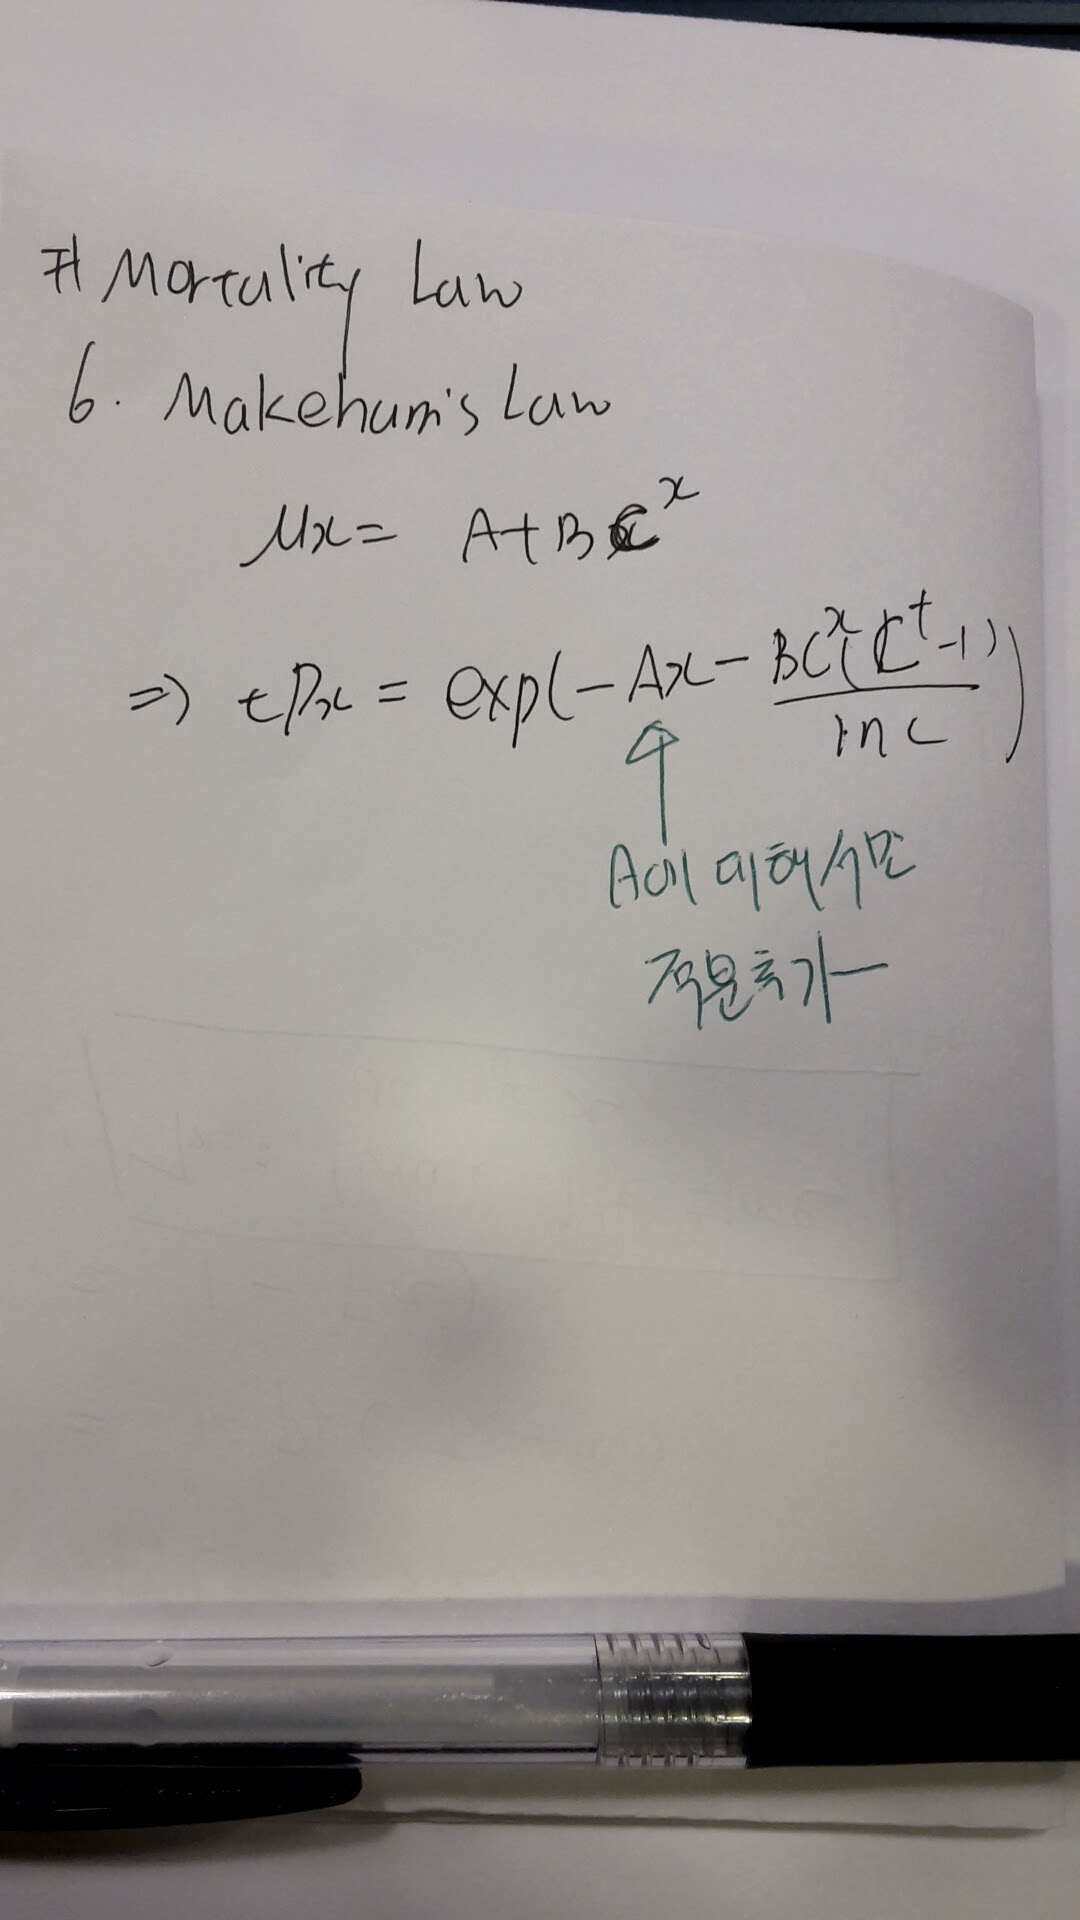 # Mortality Law
6. Makeham's Law
μx = A+BC^x
⇒ tPx = exp(-Ax - BC^x(C^t-1)/ln c)
A에 대해서만
적분추가